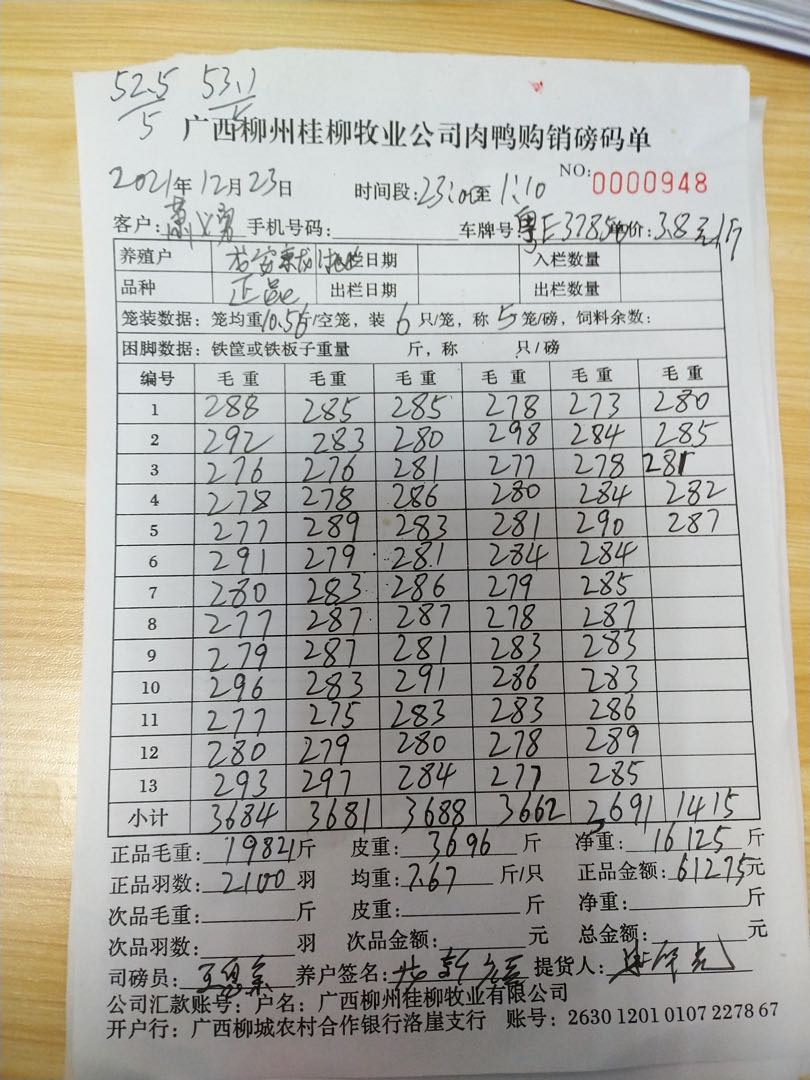 52.5/5 53.1/5
广西柳州桂柳牧业公司肉鸭购销磅码单
NO: 0000948
2021年12月23日 时间段:23:00至1:10
客户: 手机号码: 车牌号:粤E3785 价:3.8元/斤
养殖户 栏日期 入栏数量
品种 正品 出栏日期 出栏数量
笼装数据: 笼均重10.56斤/空笼, 装 6 只/笼, 称 5 笼/磅, 饲料余数:
困脚数据: 铁筐或铁板子重量 斤, 称 只/磅
编号 毛重 毛重 毛重 毛重 毛重 毛重
1 288 285 285 278 273 280
2 292 283 280 298 284 285
3 276 276 281 277 278 281
4 278 278 286 280 284 282
5 277 289 283 281 290 287
6 291 279 281 284 284
7 280 283 286 279 285
8 277 287 287 278 287
9 279 287 281 283 283
10 296 283 291 286 283
11 277 275 283 283 286
12 280 279 280 278 289
13 293 297 284 277 285
小计 3684 3681 3688 3662 3691 1415
正品毛重: 19821斤 皮重: 3696 斤 净重: 16125 斤
正品羽数: 2100 羽 均重: 7.67 斤/只 正品金额: 61275元
次品毛重: 斤 皮重: 斤 净重: 斤
次品羽数: 羽 次品金额: 元 总金额: 元
司磅员: 养户签名: 提货人:
公司汇款账号: 户名: 广西柳州桂柳牧业有限公司
开户行: 广西柳城农村合作银行洛崖支行 账号: 2630 1201 0107 2278 67